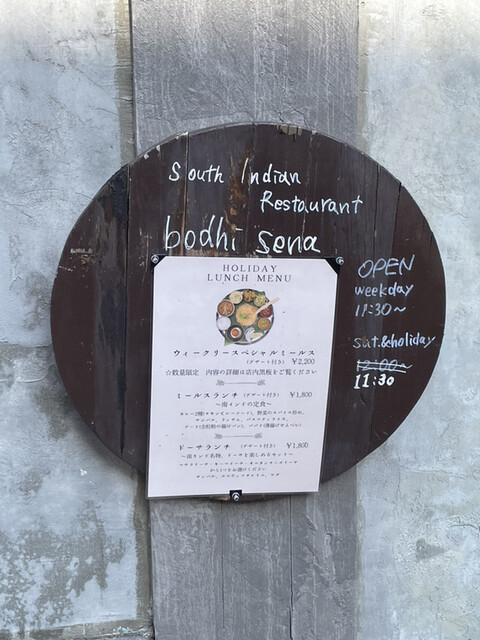 South Indian
Restaurant
bodhi sena
OPEN
weekday
11:30～
sat.&holiday
12:00～
11:30
HOLIDAY
LUNCH MENU
ウィークリースペシャルミールス
(デザート付き) ¥2,200
☆数量限定 内容の詳細は店内黒板をご覧ください
ミールスランチ (デザート付き) ¥1,800
～南インドの定食～
ドーサランチ (デザート付き) ¥1,800
～南インド名物、ドーサを楽しめるセット～
から1つをお選びください